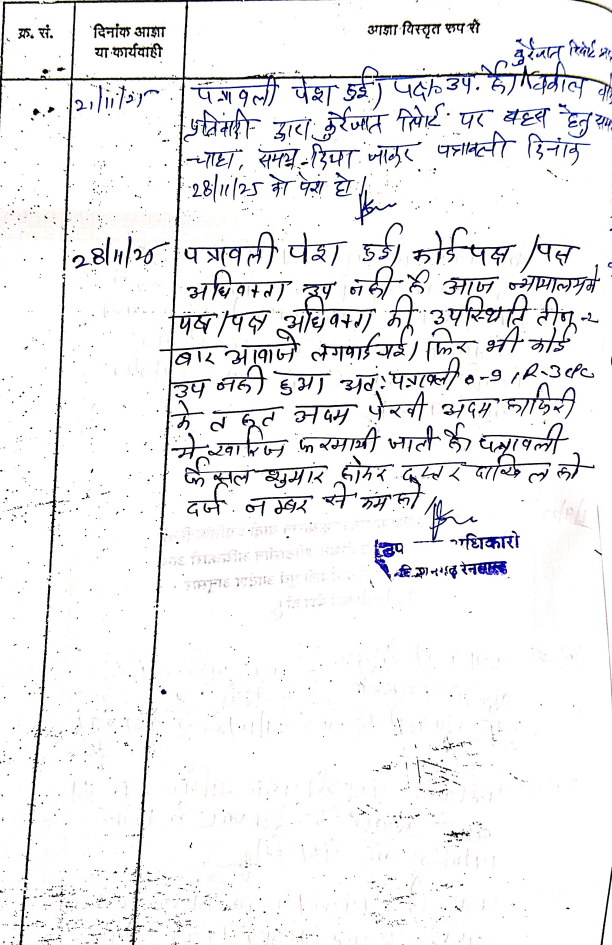 क्र. सं.
दिनांक आज्ञा
या कार्यवाही
आज्ञा विस्तृत रूप से
कुर्रेजात रिपोर्ट
21/11/25
पत्रावली पेश हुई। पक्ष. उप. है। वकील
प्रतिवादी द्वारा कुर्रेजात रिपोर्ट पर बहस हेतु
चाहा, समय दिया जाकर पत्रावली दिनांक
28/11/25 को पेश हो।
28/11/25
पत्रावली पेश हुई। कोई पक्ष / पक्ष
अधिवक्ता उप नही है आज न्यायालय मे
पक्ष / पक्ष अधिवक्ता की उपस्थिति तीन-2
बार आवाजे लगवाई गई। फिर भी कोई
उप नही हुआ अतः पत्रावली 0-9, R-3 CPC
के तहत अदम पेरवी अदम हाजिरी
मे खारिज फरमायी जाती है। पत्रावली
फैसल शुमार होकर दफ्तर दाखिल हो
दर्ज नम्बर से कम हो।
उप
धिकारी
रेनवाल